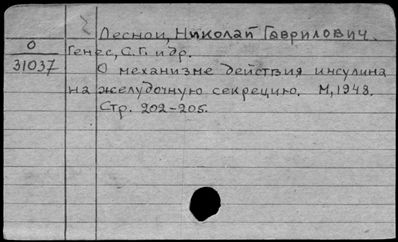 Лесной, Николай Гаврилович.
О
31037
Генес, С.Г. и др.
О механизме действия инсулина
на желудочную секрецию. М, 1948.
Стр. 202-205.